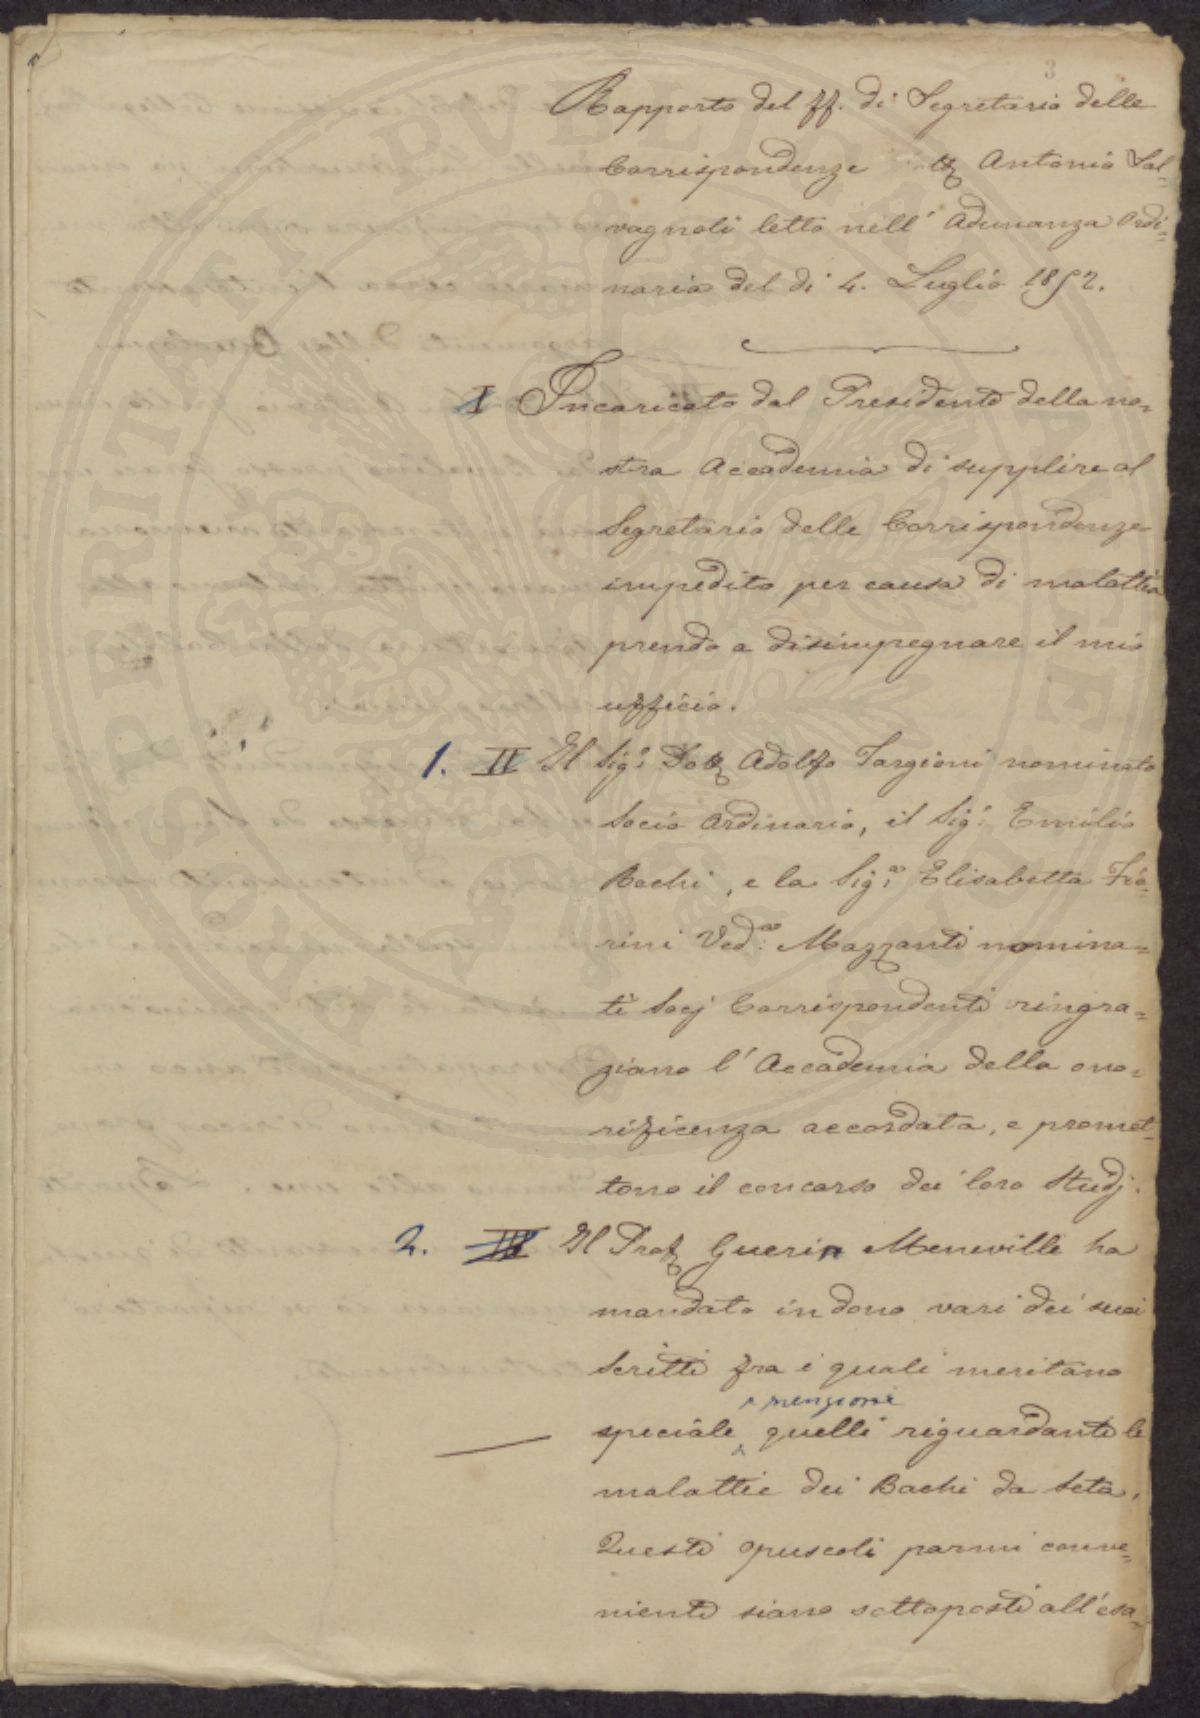 3
Rapporto del ff. di Segretario delle
Corrispondenze Antonio Sal=
vagnoli letto nell' Adunanza Ordi=
naria del di 4. Luglio 1852.
I Incaricato dal Presidente della no=
stra Accademia di supplire al
Segretario delle Corrispondenze
impedito per causa di malattia
prendo a disimpegnare il mio
ufficio.
1. II Il Sig.r Dott Adolfo Targioni nominato
Socio Ordinario, il Sig.r Emilio
Bechi, e la Sig.ra Elisabetta Fio=
rini Ved.a Mazzanti nomina=
ti Socj Corrispondenti ringra=
ziano l' Accademia della ono=
rificenza accordata, e promet=
tono il concorso dei loro Studj.
2. III Il Prof Guerin Meneville ha
mandato in dono vari dei suoi
Scritti fra i quali meritano
menzione
speciale quelli riguardanti le
malattie dei Bachi da Seta.
Questi opuscoli parmi conve=
niente siano sottoposti all'esa=
PROSPERITATI PVBLICAE AVGENDAE